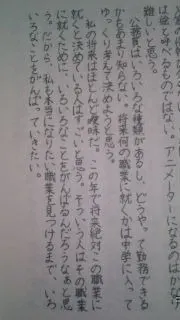 は絵と呼べるものではない。アニメーターになるのはかなり
難しいと思う。
公務員はいろいろな種類があるし、どうやって勤務できる
かもあまり知らない。将来何の職業に就くかは中学に入って
ゆっくり考えて決めようと思う。
私の将来はほとんど曖昧だ。この年で将来絶対この職業に
就くと決めている人はすごいと思う。そういう人はその職業
に就くために、いろいろなことをがんばるんだろうなぁと思
う。だから、私も本当になりたい職業を見つけるまで、いろ
いろなことをがんばっていきたい。